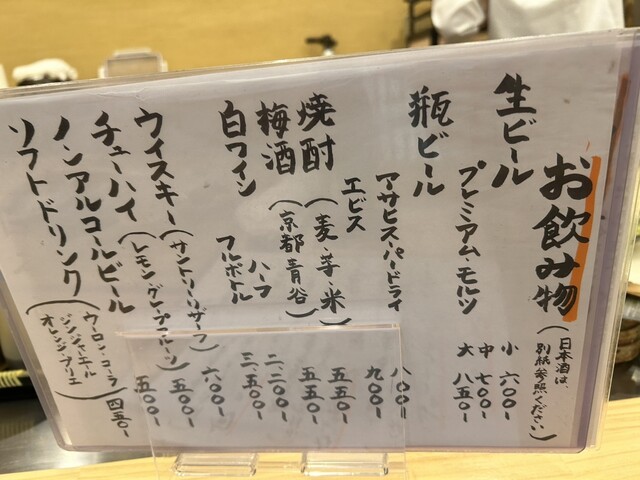 お飲み物
(日本酒は、
別紙参照ください)
生ビール
プレミアム・モルツ
小 六〇〇-
中 七〇〇-
大 八五〇-
瓶ビール
アサヒスーパードライ 八〇〇-
エビス 九〇〇-
焼酎 (麦、芋、米) 五五〇-
梅酒 (京都青谷) 五五〇-
白ワイン
ハーフ 二、二〇〇-
フルボトル 三、五〇〇-
ウイスキー (サントリーリザーブ) 六〇〇-
チューハイ (レモン・グレープフルーツ) 五〇〇-
ノンアルコールビール 五五〇-
ソフトドリンク
(ウーロン・コーラ
ジンジャーエール
オレンジ・ペリエ) 四五〇-